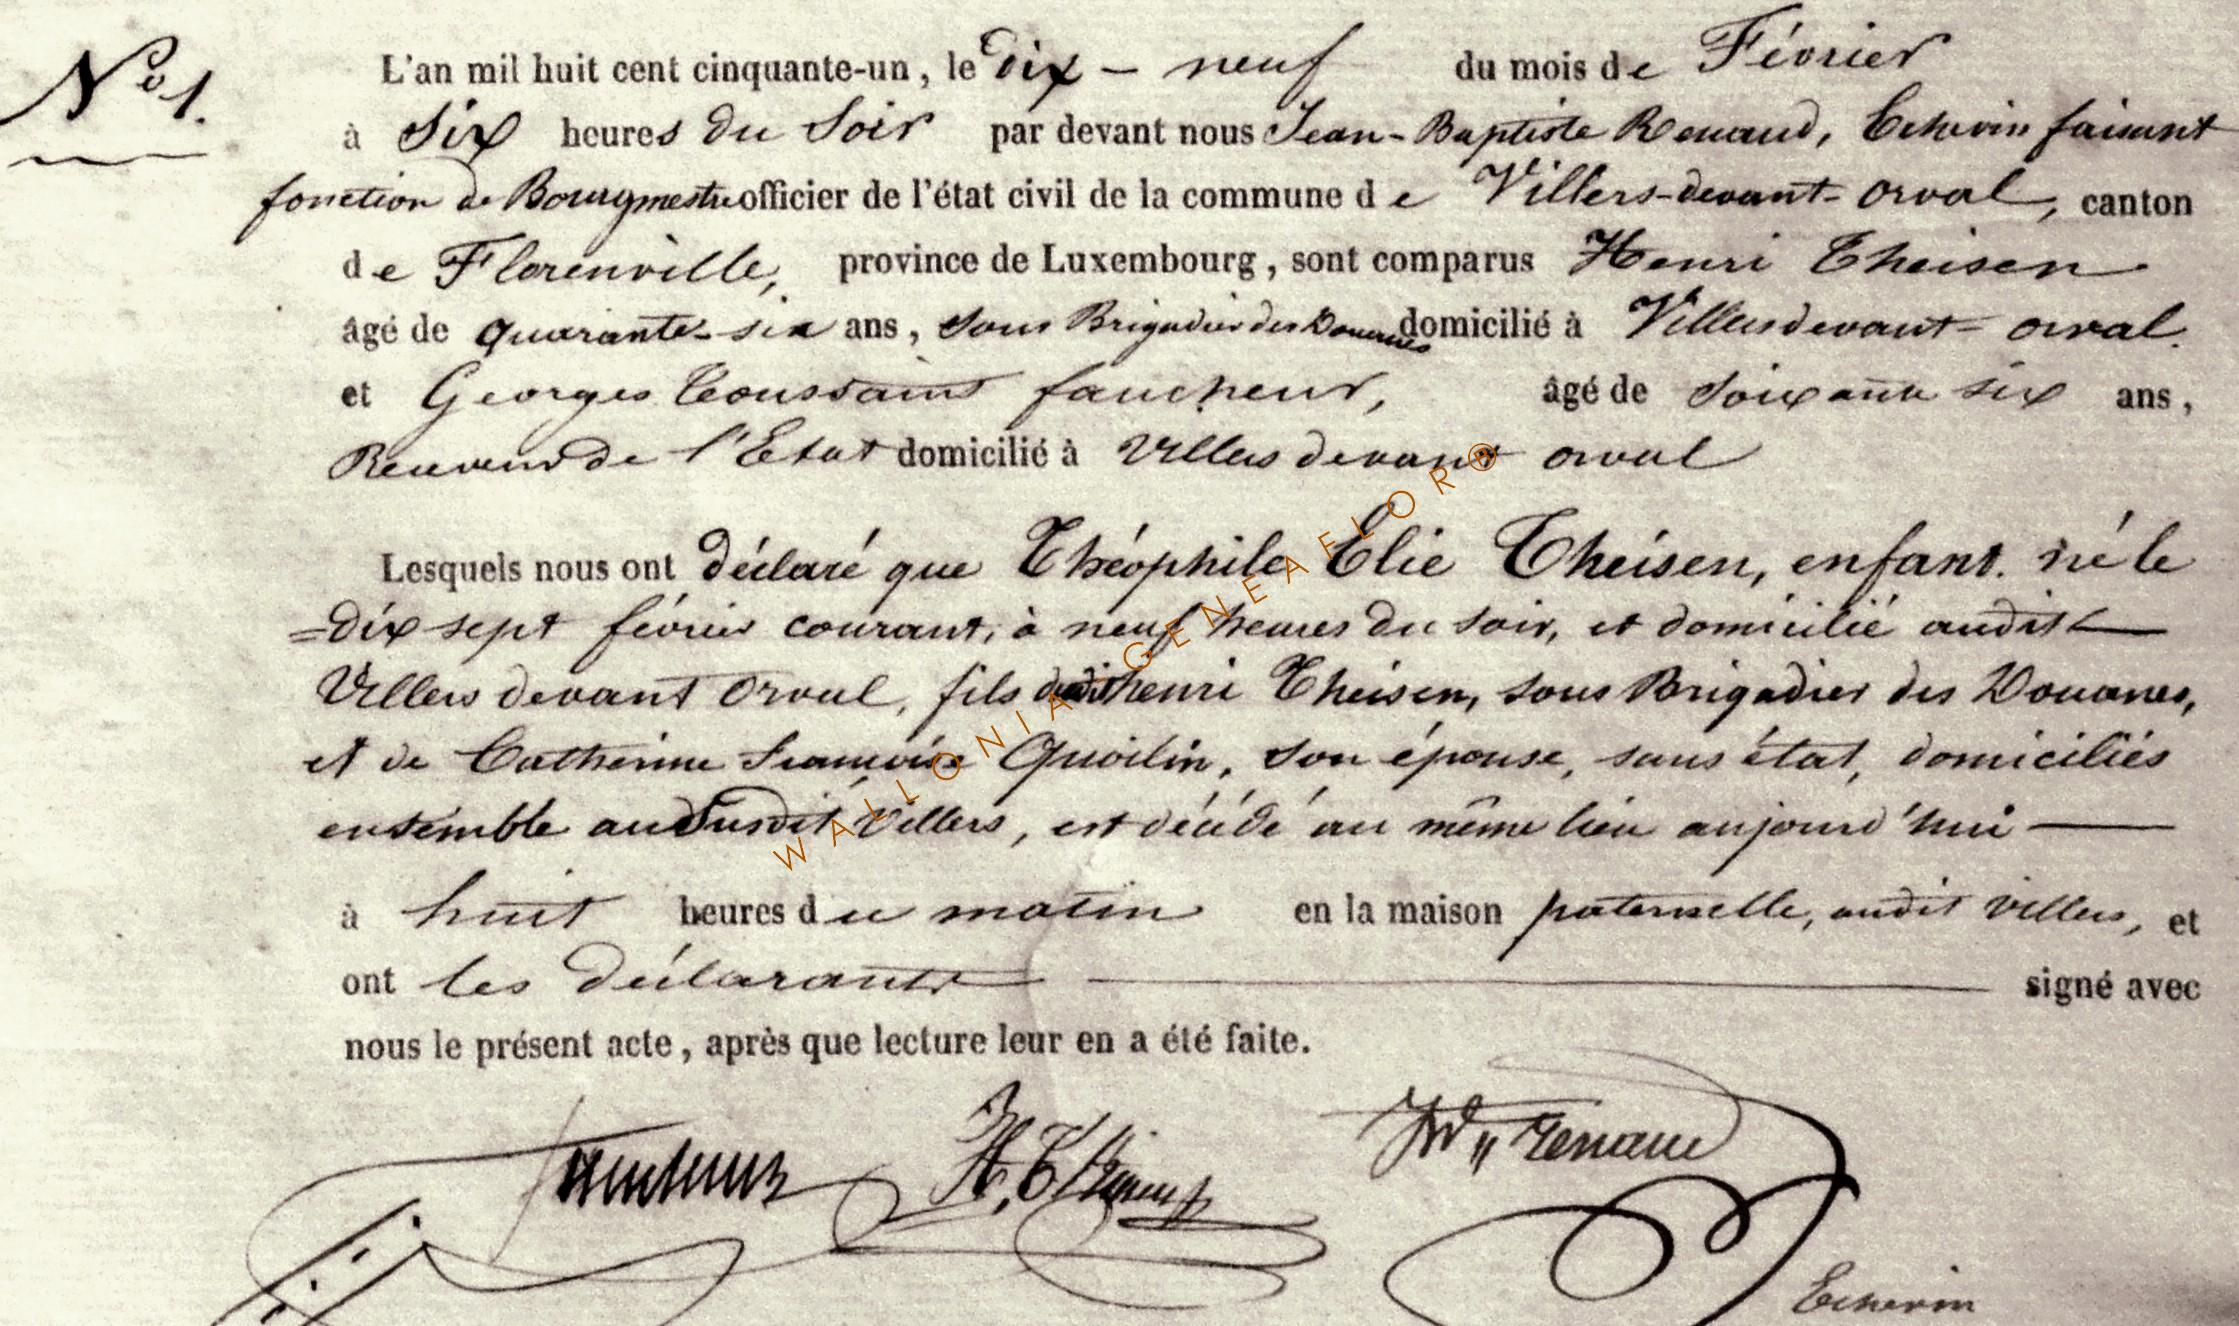 N° 1.
L'an mil huit cent cinquante-un, le dix - neuf du mois de Février
à six heures du soir par devant nous Jean-Baptiste Renaud, Echevin faisant
fonction de Bourgmestre officier de l'état civil de la commune de Villers-devant-orval, canton
de Florenville, province de Luxembourg, sont comparus Henri Theisen
âgé de quarante-six ans, sous Brigadier des Douanes domicilié à Villers devant-orval.
et Georges Toussaint faucheur, âgé de soixante six ans,
Receveur de l'Etat domicilié à Villers devant orval
Lesquels nous ont déclaré que Théophile Elie Theisen, enfant. né le
=dix sept février courant, à neuf heures du soir, et domicilié audit
Villers devant Orval, fils dudit henri Theisen, sous Brigadier des Douanes,
et de Catherine Françoise Quoilin, son épouse, sans état, domiciliés
ensemble au susdit Villers, est décédé au même lieu aujourd'hui
à huit heures du matin en la maison paternelle, audit villers, et
ont les déclarants signé avec
nous le présent acte, après que lecture leur en a été faite.
faucheur H. Theisen JBte Renaud
Echevin
WALLONIA-GENEAFLOR®